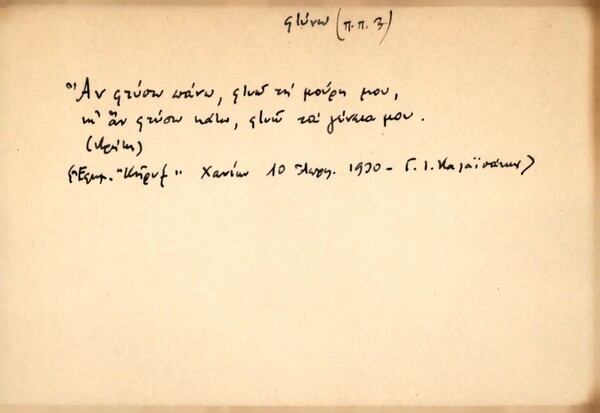 φτύνω (π.π. 3)
Ἂν φτύσω πάνω, φτυῶ τὴ μούρη μου,
κι' ἂν φτύσω κάτω, φτυῶ τὰ γένεια μου.
(Κρήτη)
(Ἐφημ. "Κῆρυξ" Χανίων 10 Ἀπρ. 1930 - Γ. Ι. Καλαϊσάκης)